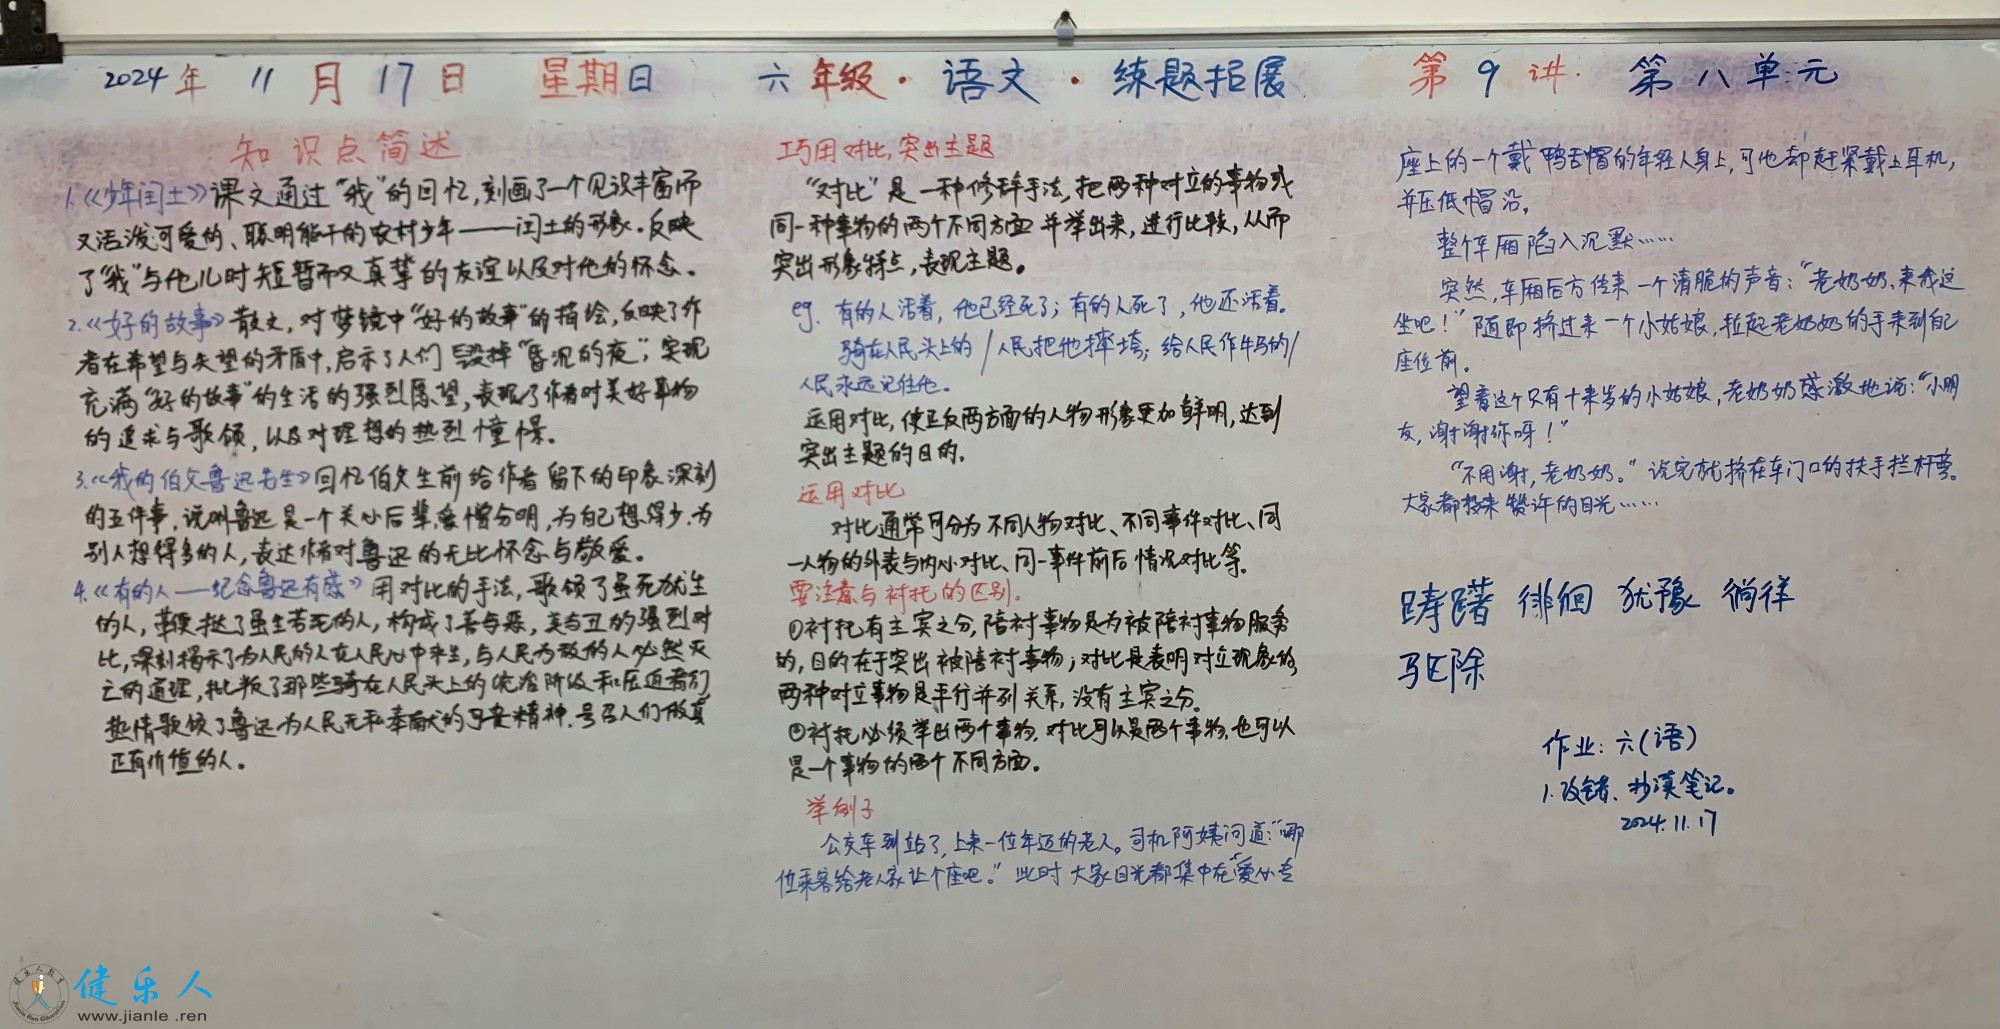 2024年 11月17日 星期日 六年级·语文·练题拓展 第9讲·第八单元
知识点简述
1.《少年闰土》课文通过“我”的回忆,刻画了一个见识丰富而
又活泼可爱的、聪明能干的农村少年——闰土的形象。反映
了“我”与他儿时短暂而又真挚的友谊以及对他的怀念。
2.《好的故事》散文,对梦镜中“好的故事”的描绘,反映了作
者在希望与失望的矛盾中,启示了人们毁掉“昏沉的夜”,实现
充满“好的故事”的生活的强烈愿望,表现了作者对美好事物
的追求与歌颂,以及对理想的热烈憧憬。
3.《我的伯父鲁迅先生》回忆伯父生前给作者留下的印象深刻
的五件事,说明鲁迅是一个关心后辈,爱憎分明,为自己想得少,为
别人想得多的人,表达作者对鲁迅的无比怀念与敬爱。
4.《有的人——纪念鲁迅有感》用对比的手法,歌颂了虽死犹生
的人,鞭挞了虽生若死的人,构成了善与恶,美与丑的强烈对
比,深刻揭示了为人民的人在人民心中永生,与人民为敌的人必然灭
亡的道理,批叛了那些骑在人民头上的统治阶级和压迫者们
热情歌颂了鲁迅为人民无私奉献的可贵精神,号召人们做真
正有价值的人。
巧用对比,突出主题
“对比”是一种修辞手法,把两种对立的事物或
同一种事物的两个不同方面并举出来,进行比较,从而
突出形象特点,表现主题。
eg. 有的人活着,他已经死了;有的人死了,他还活着。
骑在人民头上的/人民把他摔垮;给人民作牛马的/
人民永远记住他。
运用对比,使正反两方面的人物形象更加鲜明,达到
突出主题的目的。
运用对比
对比通常可分为不同人物对比、不同事件对比、同
一人物的外表与内心对比、同一事件前后情况对比等。
要注意与衬托的区别。
①衬托有主宾之分,陪衬事物是为被陪衬事物服务
的,目的在于突出被陪衬事物;对比是表明对立现象的,
两种对立事物是平行并列关系,没有主宾之分。
②衬托必须举出两个事物,对比可以是两个事物,也可以
是一个事物的两个不同方面。
举例子
公交车到站了,上来一位年迈的老人。司机阿姨问道:“哪
位乘客给老人家让个座吧。”此时大家目光都集中在“爱心专
座上的一个戴鸭舌帽的年轻人身上,可他却赶紧戴上耳机,
并压低帽沿。
整个车厢陷入沉默……
突然,车厢后方传来一个清脆的声音:“老奶奶,来我这
坐吧!”随即挤过来一个小姑娘,拉起老奶奶的手来到自己
座位前。
望着这个只有十来岁的小姑娘,老奶奶感激地说:“小朋
友,谢谢你呀!”
“不用谢,老奶奶。”说完就挤在车门口的扶手拦杆旁。
大家都投来赞许的目光……
踌躇 徘徊 犹豫 徜徉
驱除
作业:六(语)
1.改错、抄读笔记。
2024.11.17
健乐人
www.jianle.ren